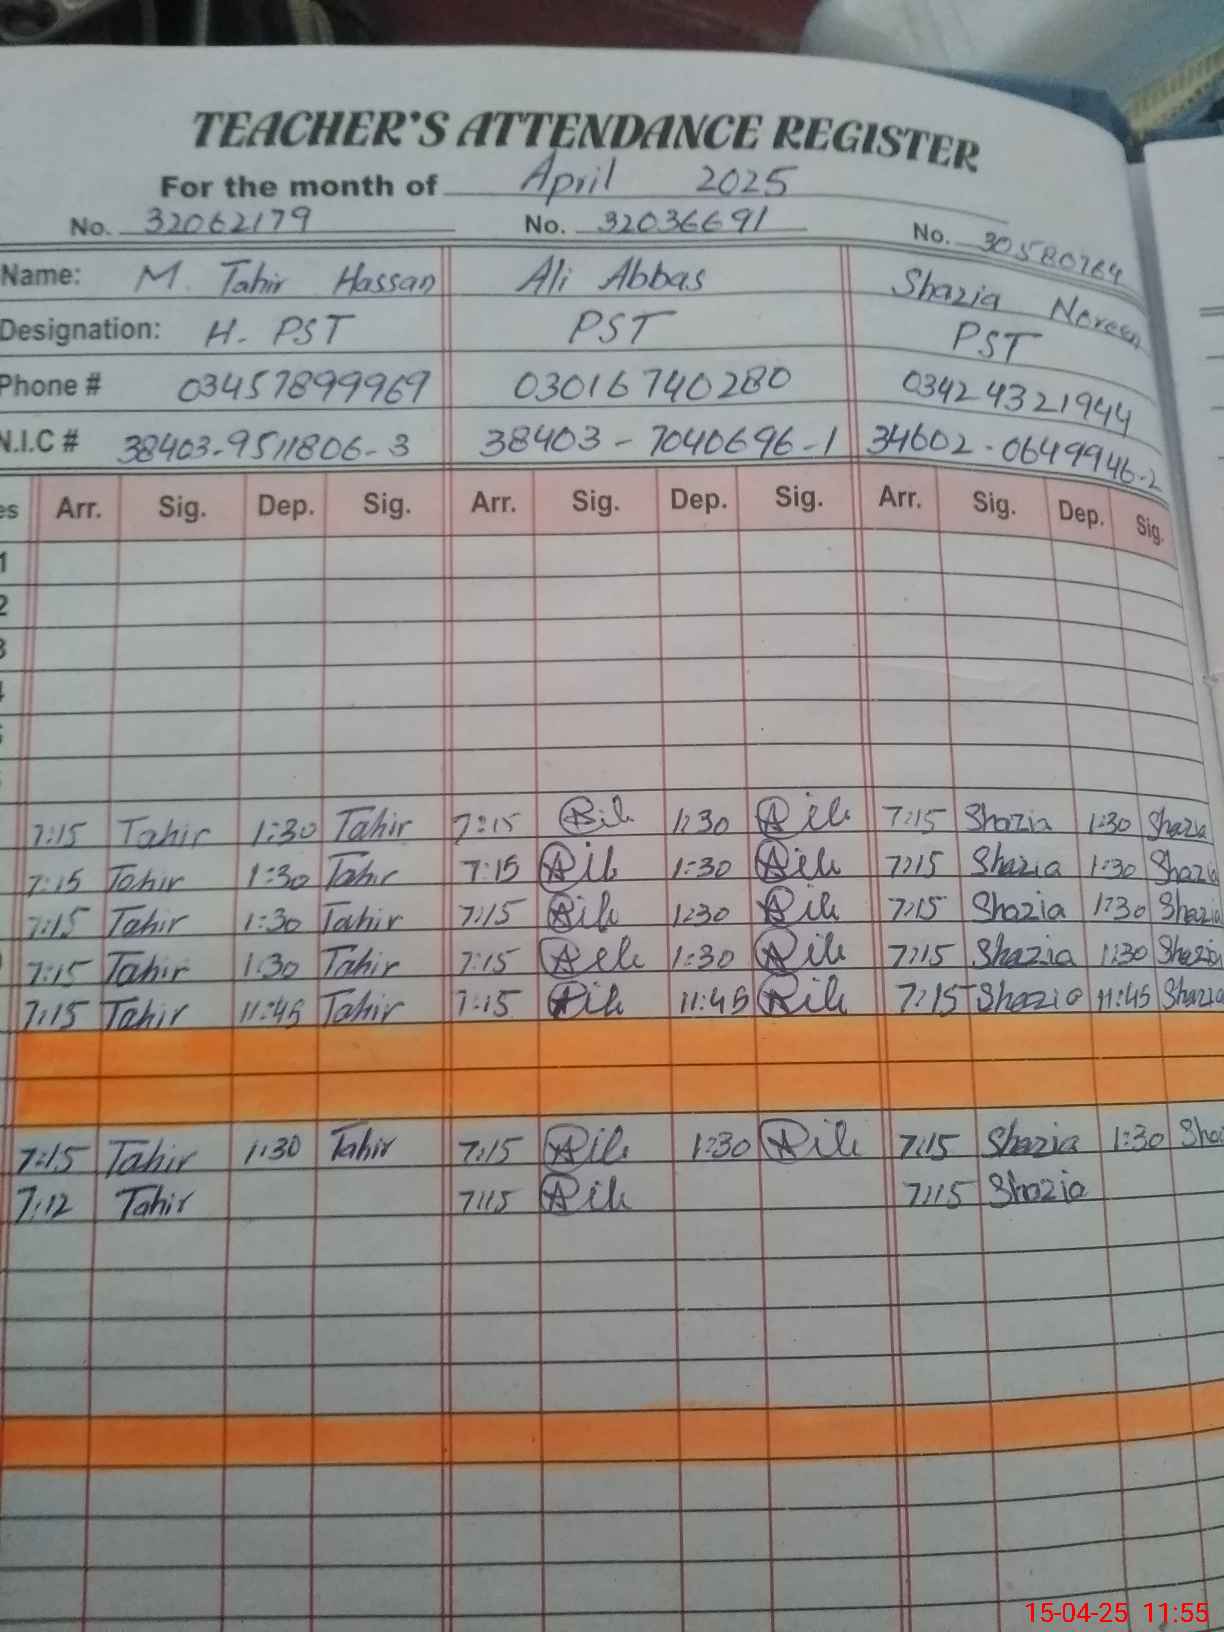 TEACHER'S ATTENDANCE REGISTER
For the month of April 2025
No. 32062179 No. 32036691 No. 30580764
Name: M. Tahir Hassan Ali Abbas Shazia Noreen
Designation: H. PST PST PST
Phone # 03457899969 03016740280 03424321944
N.I.C # 38403-9511806-3 38403-7040696-1 34602-0649946-2
es Arr. Sig. Dep. Sig. Arr. Sig. Dep. Sig. Arr. Sig. Dep. Sig.
1
2
3
4
7:15 Tahir 1:30 Tahir 7:15 1:30 7:15 Shazia 1:30 Shazia
7:15 Tahir 1:30 Tahir 7:15 1:30 7:15 Shazia 1:30 Shazia
7:15 Tahir 1:30 Tahir 7:15 1:30 7:15 Shazia 1:30 Shazia
7:15 Tahir 1:30 Tahir 7:15 1:30 7:15 Shazia 1:30 Shazia
7:15 Tahir 11:45 Tahir 7:15 11:45 7:15 Shazia 11:45 Shazia
7:15 Tahir 1:30 Tahir 7:15 1:30 7:15 Shazia 1:30 Shaz
7:12 Tahir 7:15 7:15 Shazia
15-04-25 11:55